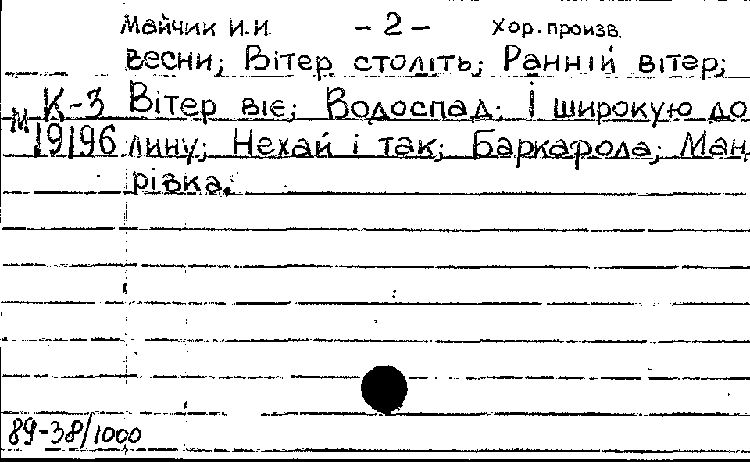 Майчик И.И. - 2 - Хор. произв.
весни; Вітер століть; Ранній вітер;
К-3 Вітер віє; Водоспад; І широкую до
М 19196 лину; Нехай і так; Баркарола; Ман
рівка.
89-38/1000